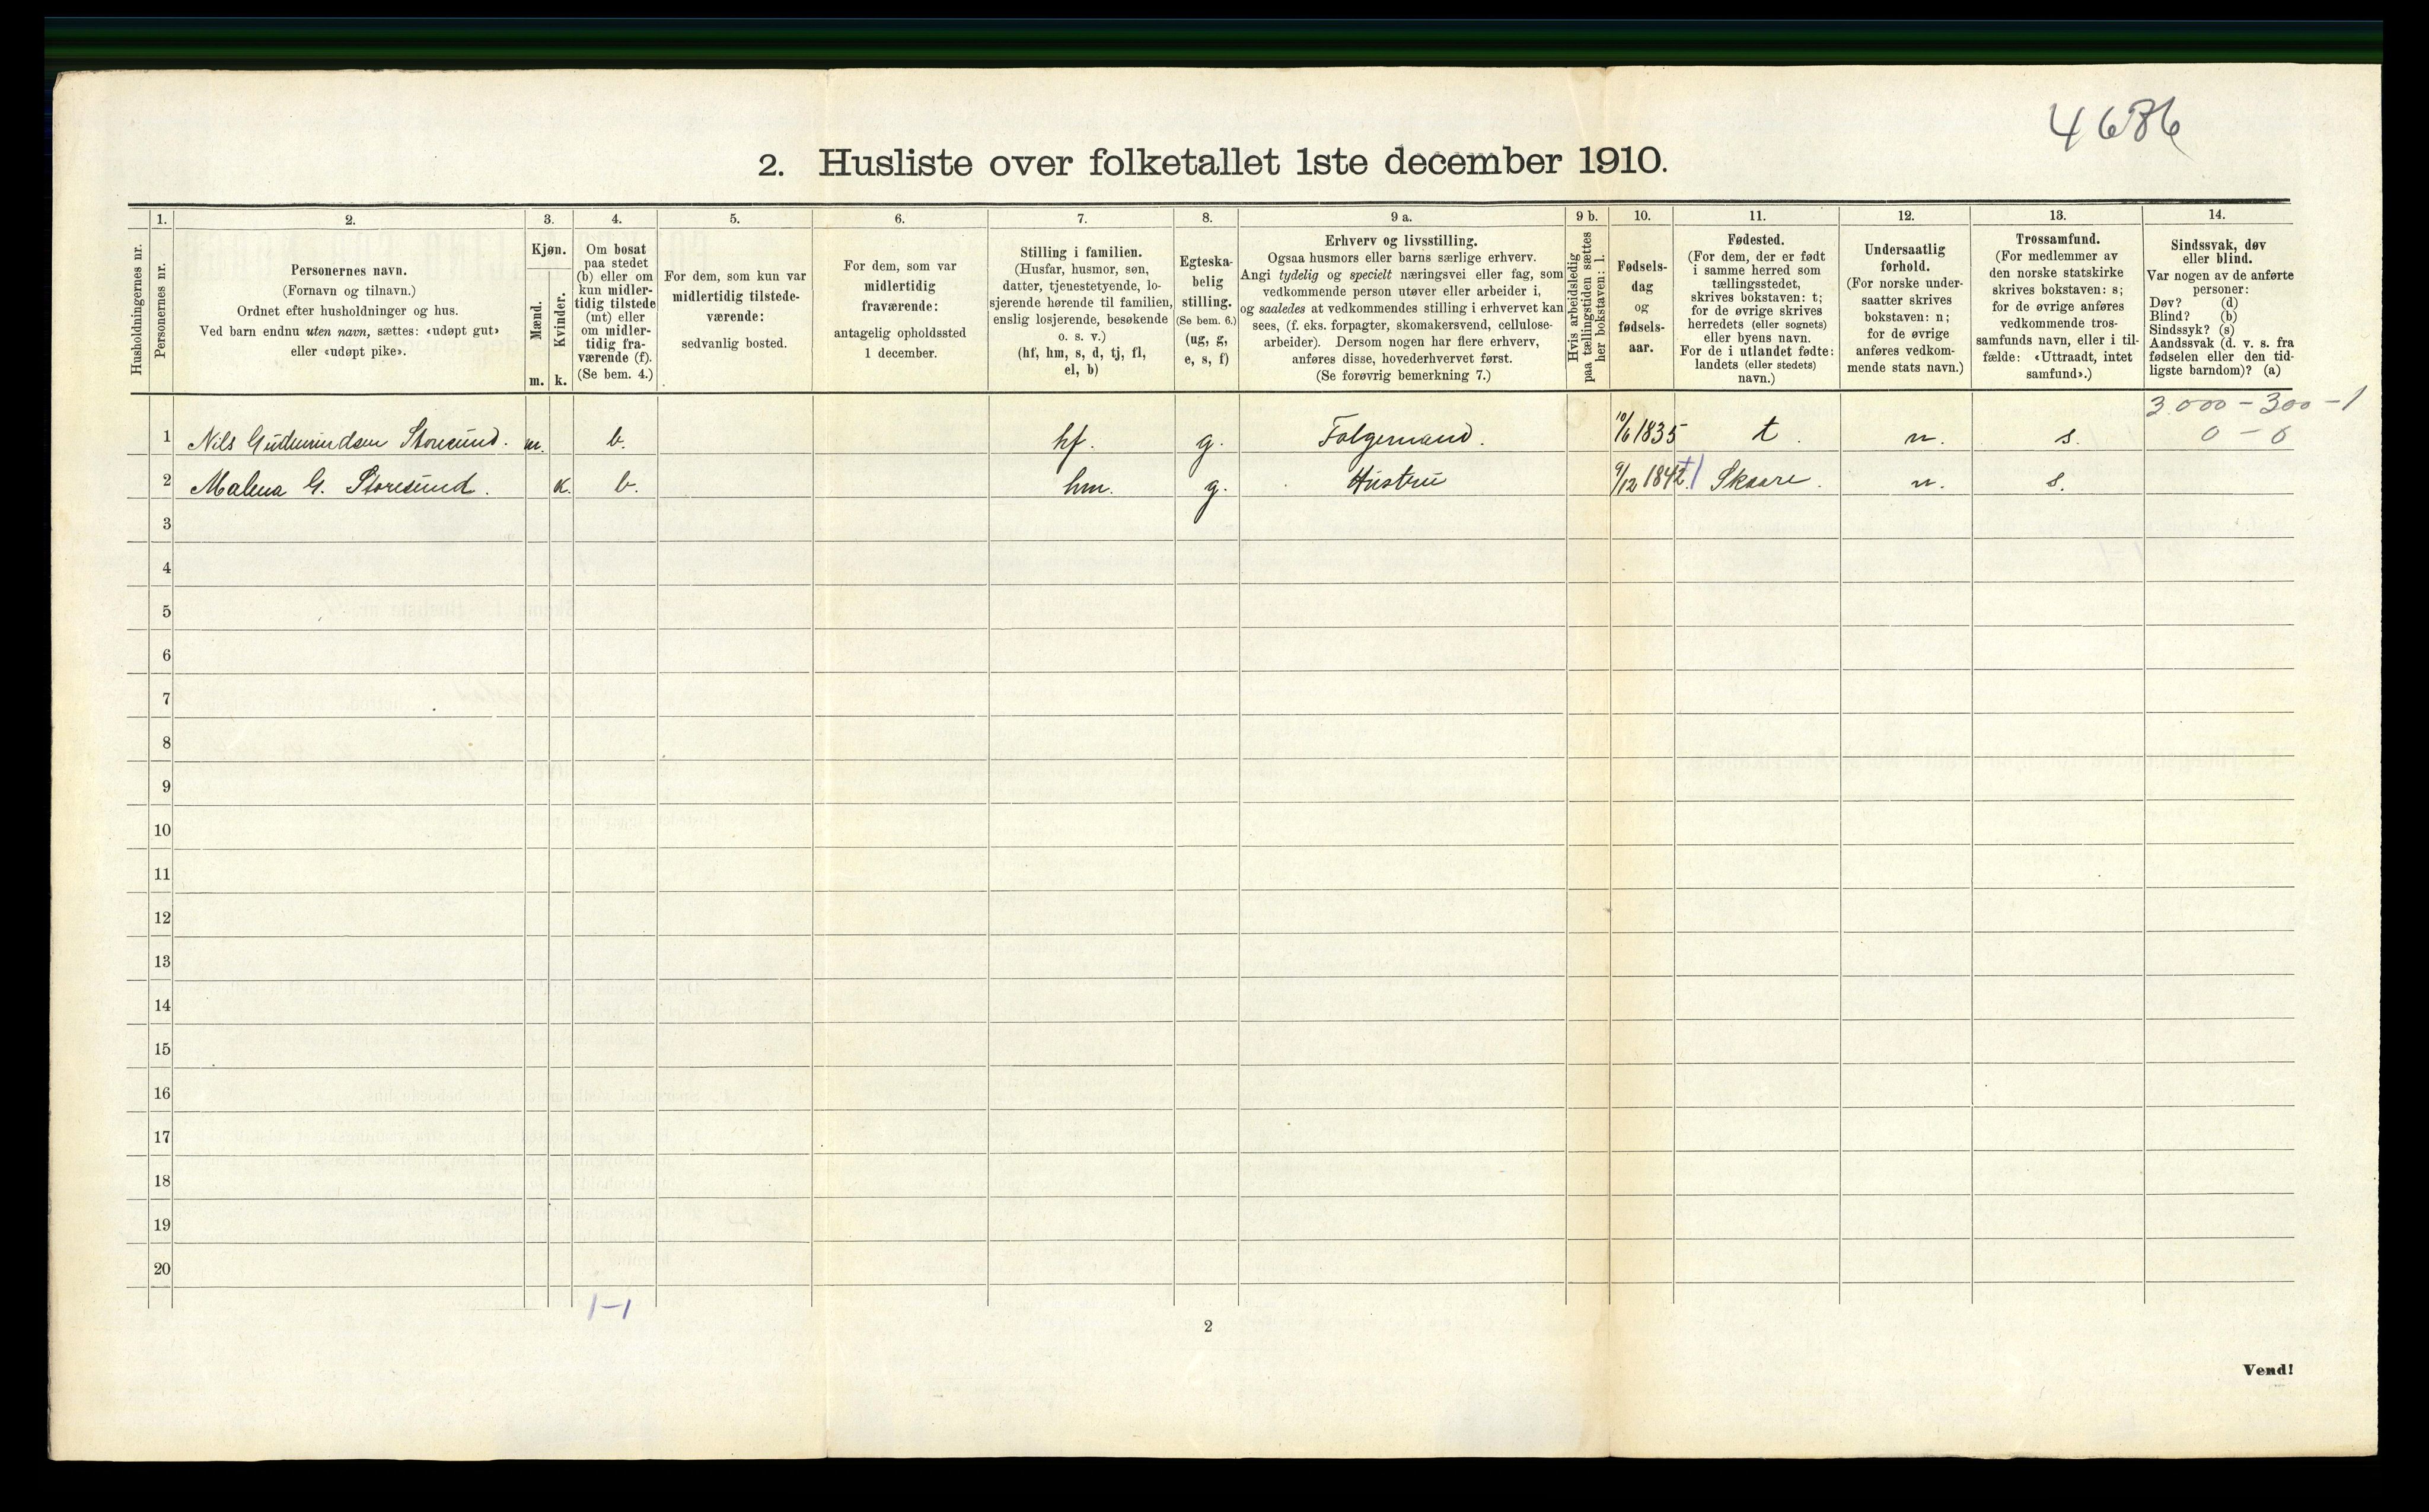 4686
2. Husliste over folketallet 1ste december 1910.
1. 2. 3. 4. 5. 6. 7. 8. 9 a. 9 b. 10. 11. 12. 13. 14.
Husholdningernes nr.
Personernes nr.
Personernes navn.
(Fornavn og tilnavn.)
Ordnet efter husholdninger og hus.
Ved barn endnu uten navn, sættes: «udøpt gut»
eller «udøpt pike».
Kjøn.
Mænd.
Kvinder.
m. k.
Om bosat
paa stedet
(b) eller om
kun midler-
tidig tilstede
(mt) eller
om midler-
tidig fra-
værende (f).
(Se bem. 4.)
For dem, som kun var
midlertidig tilstede-
værende:
sedvanlig bosted.
For dem, som var
midlertidig
fraværende:
antagelig opholdssted
1 december.
Stilling i familien.
(Husfar, husmor, søn,
datter, tjenestetyende, lo-
sjerende hørende til familien,
enslig losjerende, besøkende
o. s. v.)
(hf, hm, s, d, tj, fl,
el, b)
Egteska-
belig
stilling.
(Se bem. 6.)
(ug, g,
e, s, f)
Erhverv og livsstilling.
Ogsaa husmors eller barns særlige erhverv.
Angi tydelig og specielt næringsvei eller fag, som
vedkommende person utøver eller arbeider i,
og saaledes at vedkommendes stilling i erhvervet kan
sees, (f. eks. forpagter, skomakersvend, cellulose-
arbeider). Dersom nogen har flere erhverv,
anføres disse, hovederhvervet først.
(Se forøvrig bemerkning 7.)
Hvis arbeidsledig
paa tællingstiden sættes
her bokstaven: l.
Fødsels-
dag
og
fødsels-
aar.
Fødested.
(For dem, der er født
i samme herred som
tællingsstedet,
skrives bokstaven: t;
for de øvrige skrives
herredets (eller sognets)
eller byens navn.
For de i utlandet fødte:
landets (eller stedets)
navn.)
Undersaatlig
forhold.
(For norske under-
saatter skrives
bokstaven: n;
for de øvrige
anføres vedkom-
mende stats navn.)
Trossamfund.
(For medlemmer av
den norske statskirke
skrives bokstaven: s;
for de øvrige anføres
vedkommende tros-
samfunds navn, eller i til-
fælde: «Uttraadt, intet
samfund».)
Sindssvak, døv
eller blind.
Var nogen av de anførte
personer:
Døv? (d)
Blind? (b)
Sindssyk? (s)
Aandssvak (d. v. s. fra
fødselen eller den tid-
ligste barndom)? (a)
3.000 - 300 - 1
0 - 0
1 Nils Gudmundsen Storesund. m. b. hf. g. Folgemand. 10/6 1835 t. n. s.
2 Malena G. Storesund. k. b. hm. g. Hustru 9/12 1842. Skaare. n. s.
3
4
5
6
7
8
9
10
11
12
13
14
15
16
17
18
19
20
1-1
2
Vend!